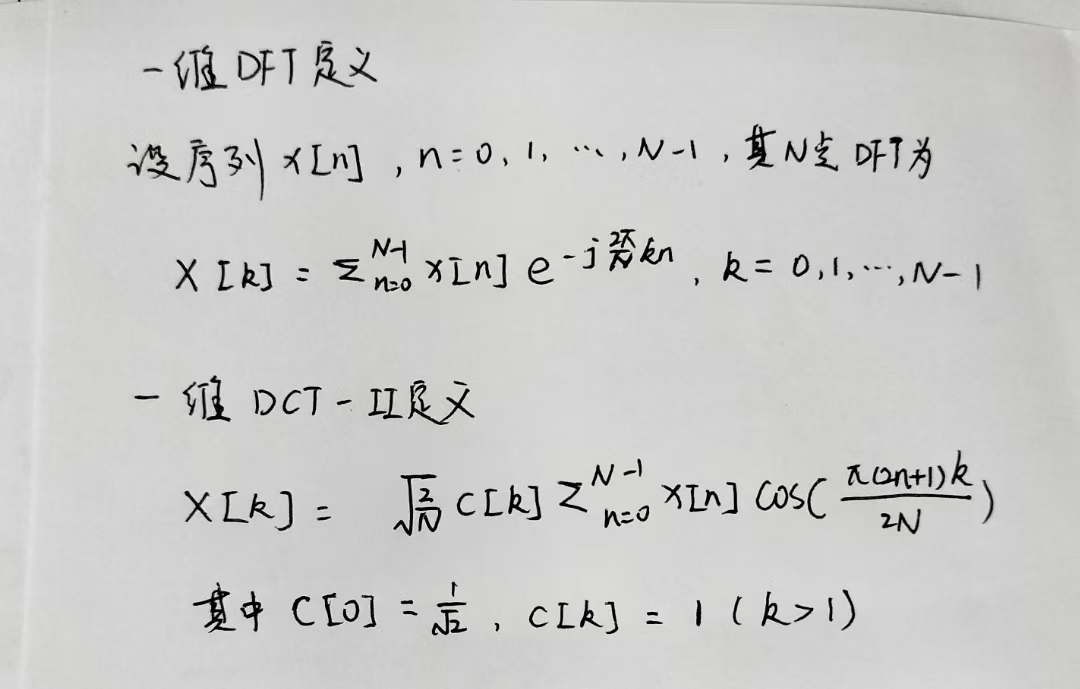 一维 DFT 定义
设序列 x[n] , n = 0, 1, ⋯, N-1 , 其 N 点 DFT 为
X[k] = Σ_{n=0}^{N-1} x[n] e^{-j\frac{2π}{N}kn} , k = 0,1,⋯,N-1
一维 DCT-II定义
X[k] = \sqrt{\frac{2}{N}} C[k] Σ_{n=0}^{N-1} x[n] cos(\frac{π(2n+1)k}{2N})
其中 C[0] = \frac{1}{\sqrt{2}} , C[k] = 1 (k>1)